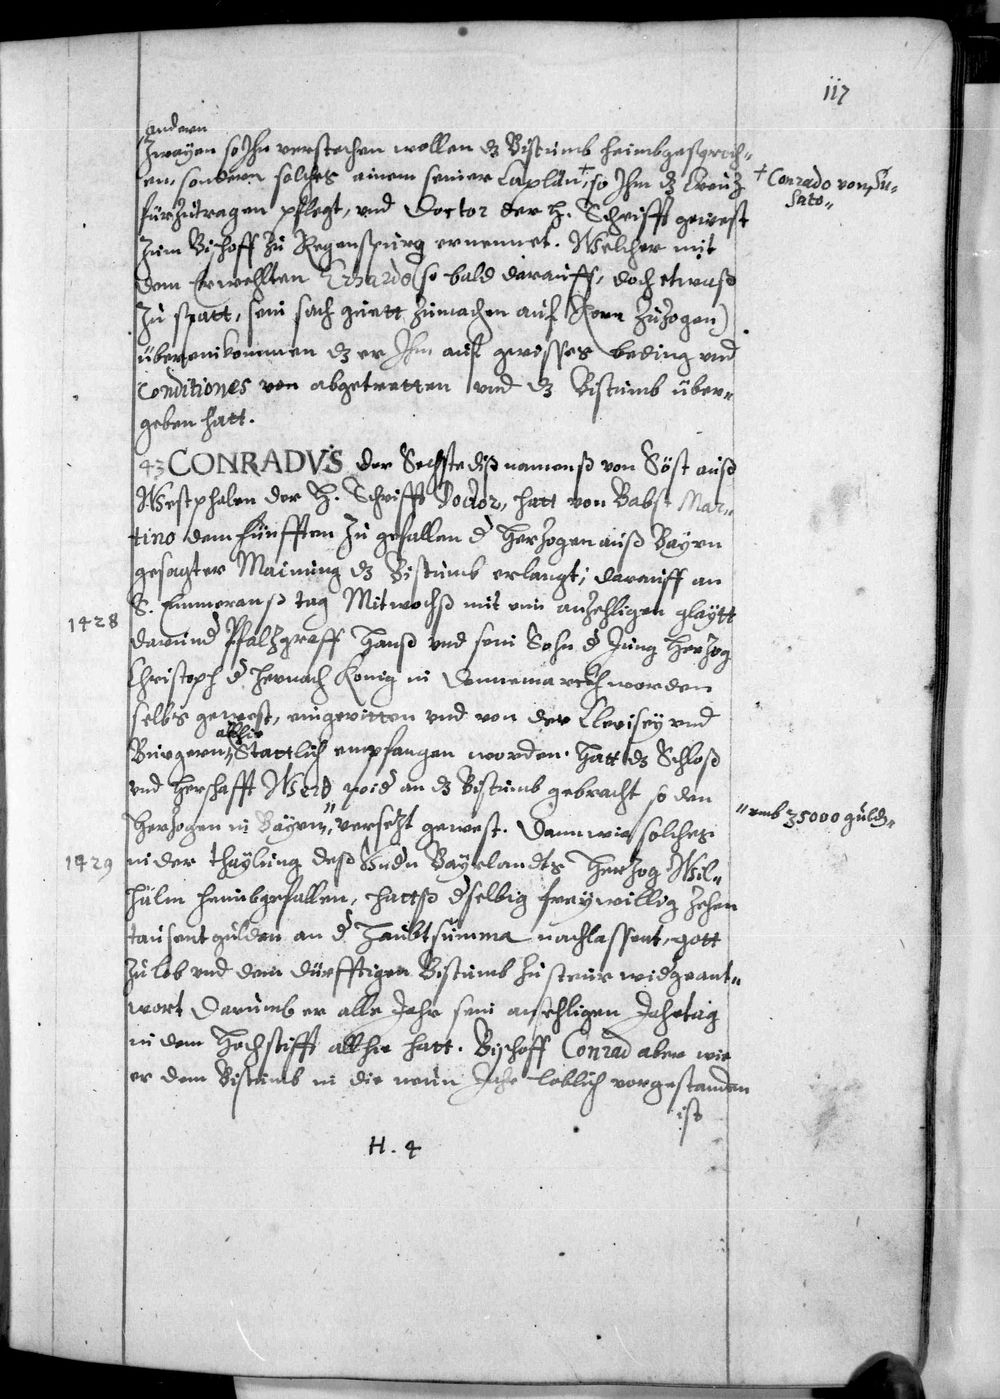 117
andern
Zwayen so Ihn verstechen wollen dz Bistumb heimbgesproch-
en, sondern solches einem seiner Caplän†, so Ihm dz Creütz
† Conrado von Su-
sato„
fürzutragen pflegt, und Doctor der H. Schrifft gewest
zum Bischoff zu Regenspurg ernennet. Welcher mit
dem Erwehlten Erhardo (so bald darauff, doch etwaß
zu spatt, sein sach guett zumachen auf Rom zuzogen)
überainkommen dz er Ihm auf gewisses beding und
Conditiones von abgetretten und dz Bistumb über-
geben hatt.
43 CONRADVS der Sechste diß namenß von Söst auß
Westphalen der H. Schrifft Doctor, hatt von Babst Mar-
tino dem fünfften zu gefallen d Herzogen auß Bayrn
gesagter Mainung dz Bistumb erlangt; darauff an
S. Emmeranß tag Mitwochß mit ein anzehligen glaytt
1428
darund Pfalzgraff Hanß und sein Sohn d Jung Herzog
Christoph d hernach König in Dennemarckh worden
selbs gewest, eingeritten und von der Clerisey und
allhie
Burgern, Stattlich empfangen worden. Hatt dz Schloß
und Herschafft Werd wid an dz Bistumb gebracht so den
Herzogen in Bayrn „ versezt gewest. Dann wie solches
„ umb 35000 guld„
1429
in der thaylung deß Undn Bayrlandts Herzog Wil-
hülm heimbgefallen, hattß dselbig freywillig zehen
tausent gulden an d Haubtsumma nachlassent, gott
zu lob und dem dürfftigen Bistumb zu steur widgeant-
wort Darumb er alle Jahr sein ansehligen Jahrtag
in dem Hochstifft allhie hatt. Bischoff Conrad aber wie
er dem Bistumb in die neun Jahr loblich vorgestanden
ist
H. 4